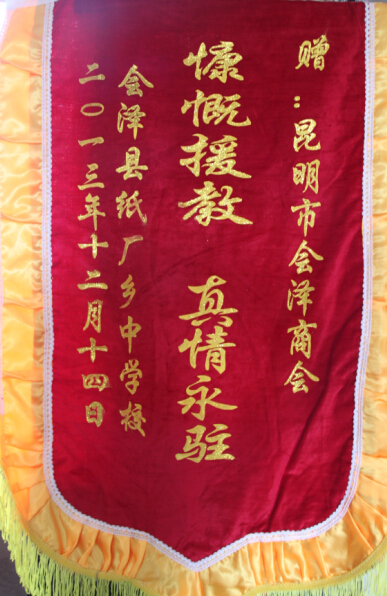 赠：昆明市会泽商会
慷慨援教 真情永驻
会泽县纸厂乡中学校
二〇一三年十二月十四日